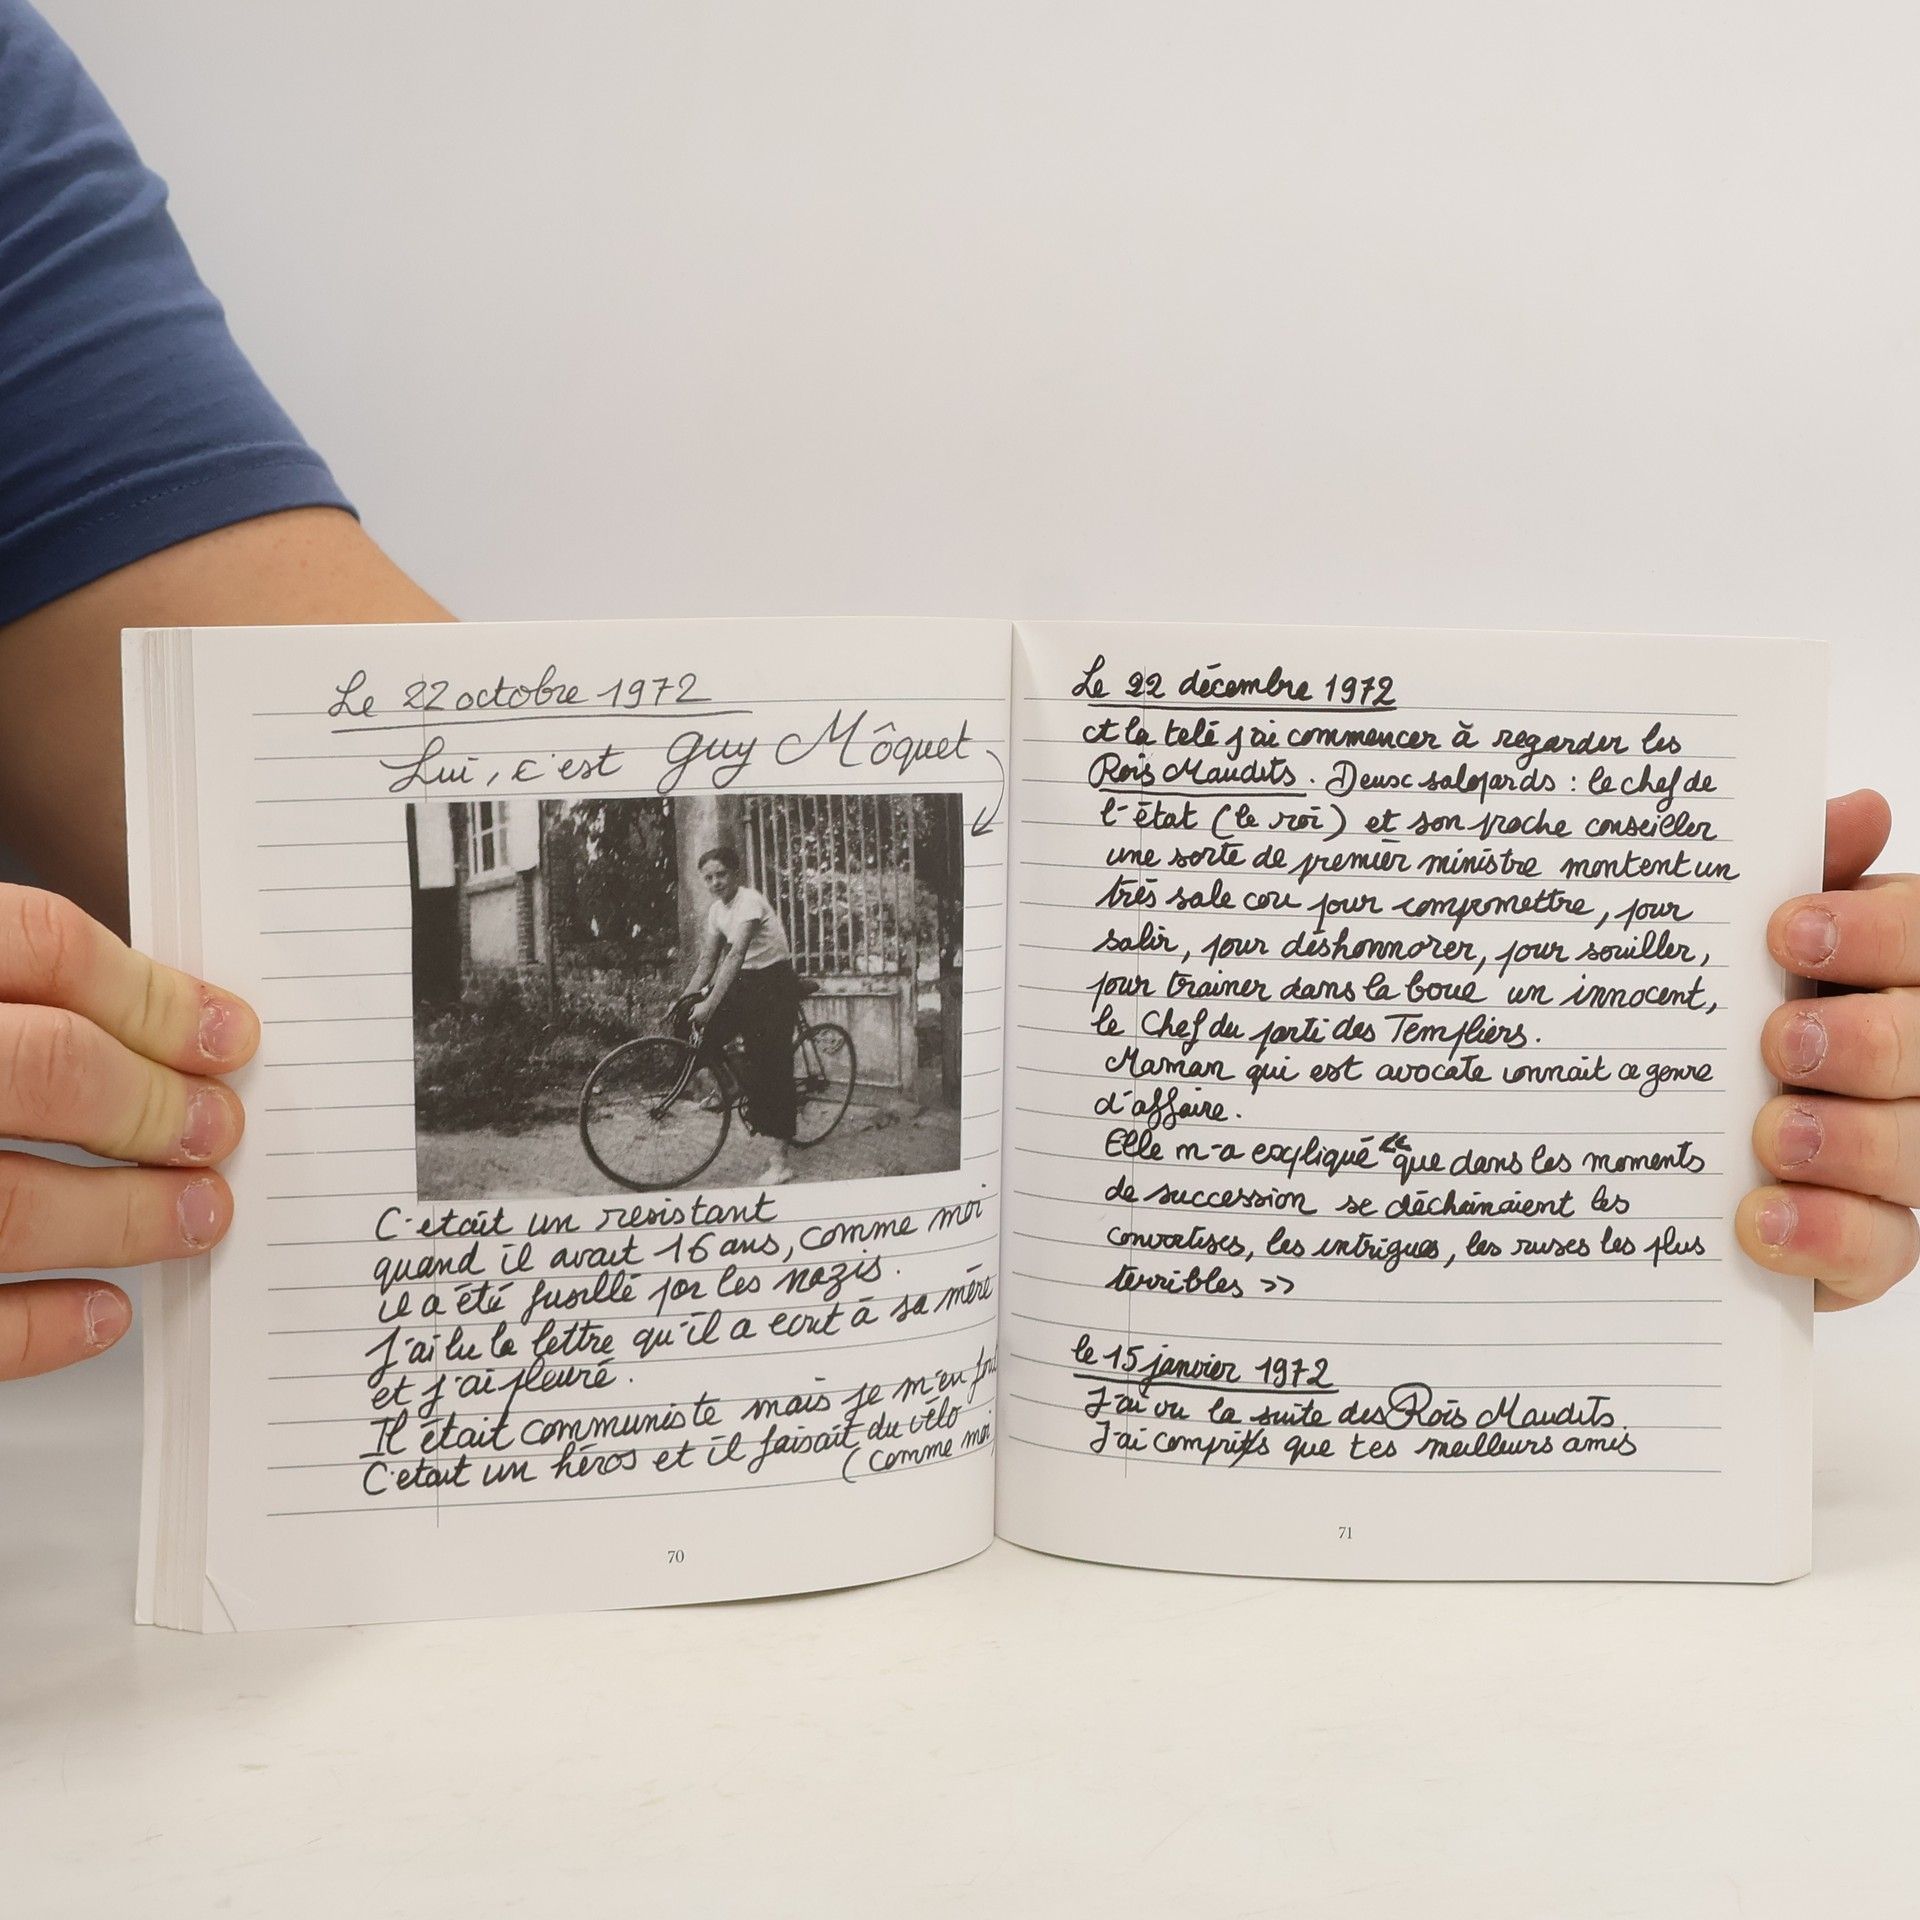 Le 22 octobre 1972
Lui, c'est Guy Môquet
C'etait un resistant
quand il avait 16 ans, comme moi
il a été fusillé par les nazis.
J'ai lu la lettre qu'il a ecrit à sa mère
et j'ai pleuré.
Il était communiste mais je m'en fout
C'etait un héros et il faisait du vélo
(comme moi
70
Le 22 décembre 1972
A la telé j'ai commencer à regarder les
Rois Maudits. Deux salopards : le chef de
l'état (le roi) et son proche conseiller
une sorte de premier ministre montent un
très sale cou pour compromettre, pour
salir, pour déshonnorer, pour souiller,
pour trainer dans la boue un innocent,
le Chef du parti des Templiers.
Maman qui est avocate connait ce genre
d'affaire.
Elle m'a expliqué "que dans les moments
de succession se déchainaient les
convoitises, les intrigues, les ruses les plus
terribles >>
le 15 janvier 1972
J'ai vu la suite des Rois Maudits.
J'ai compris que tes meilleurs amis
71